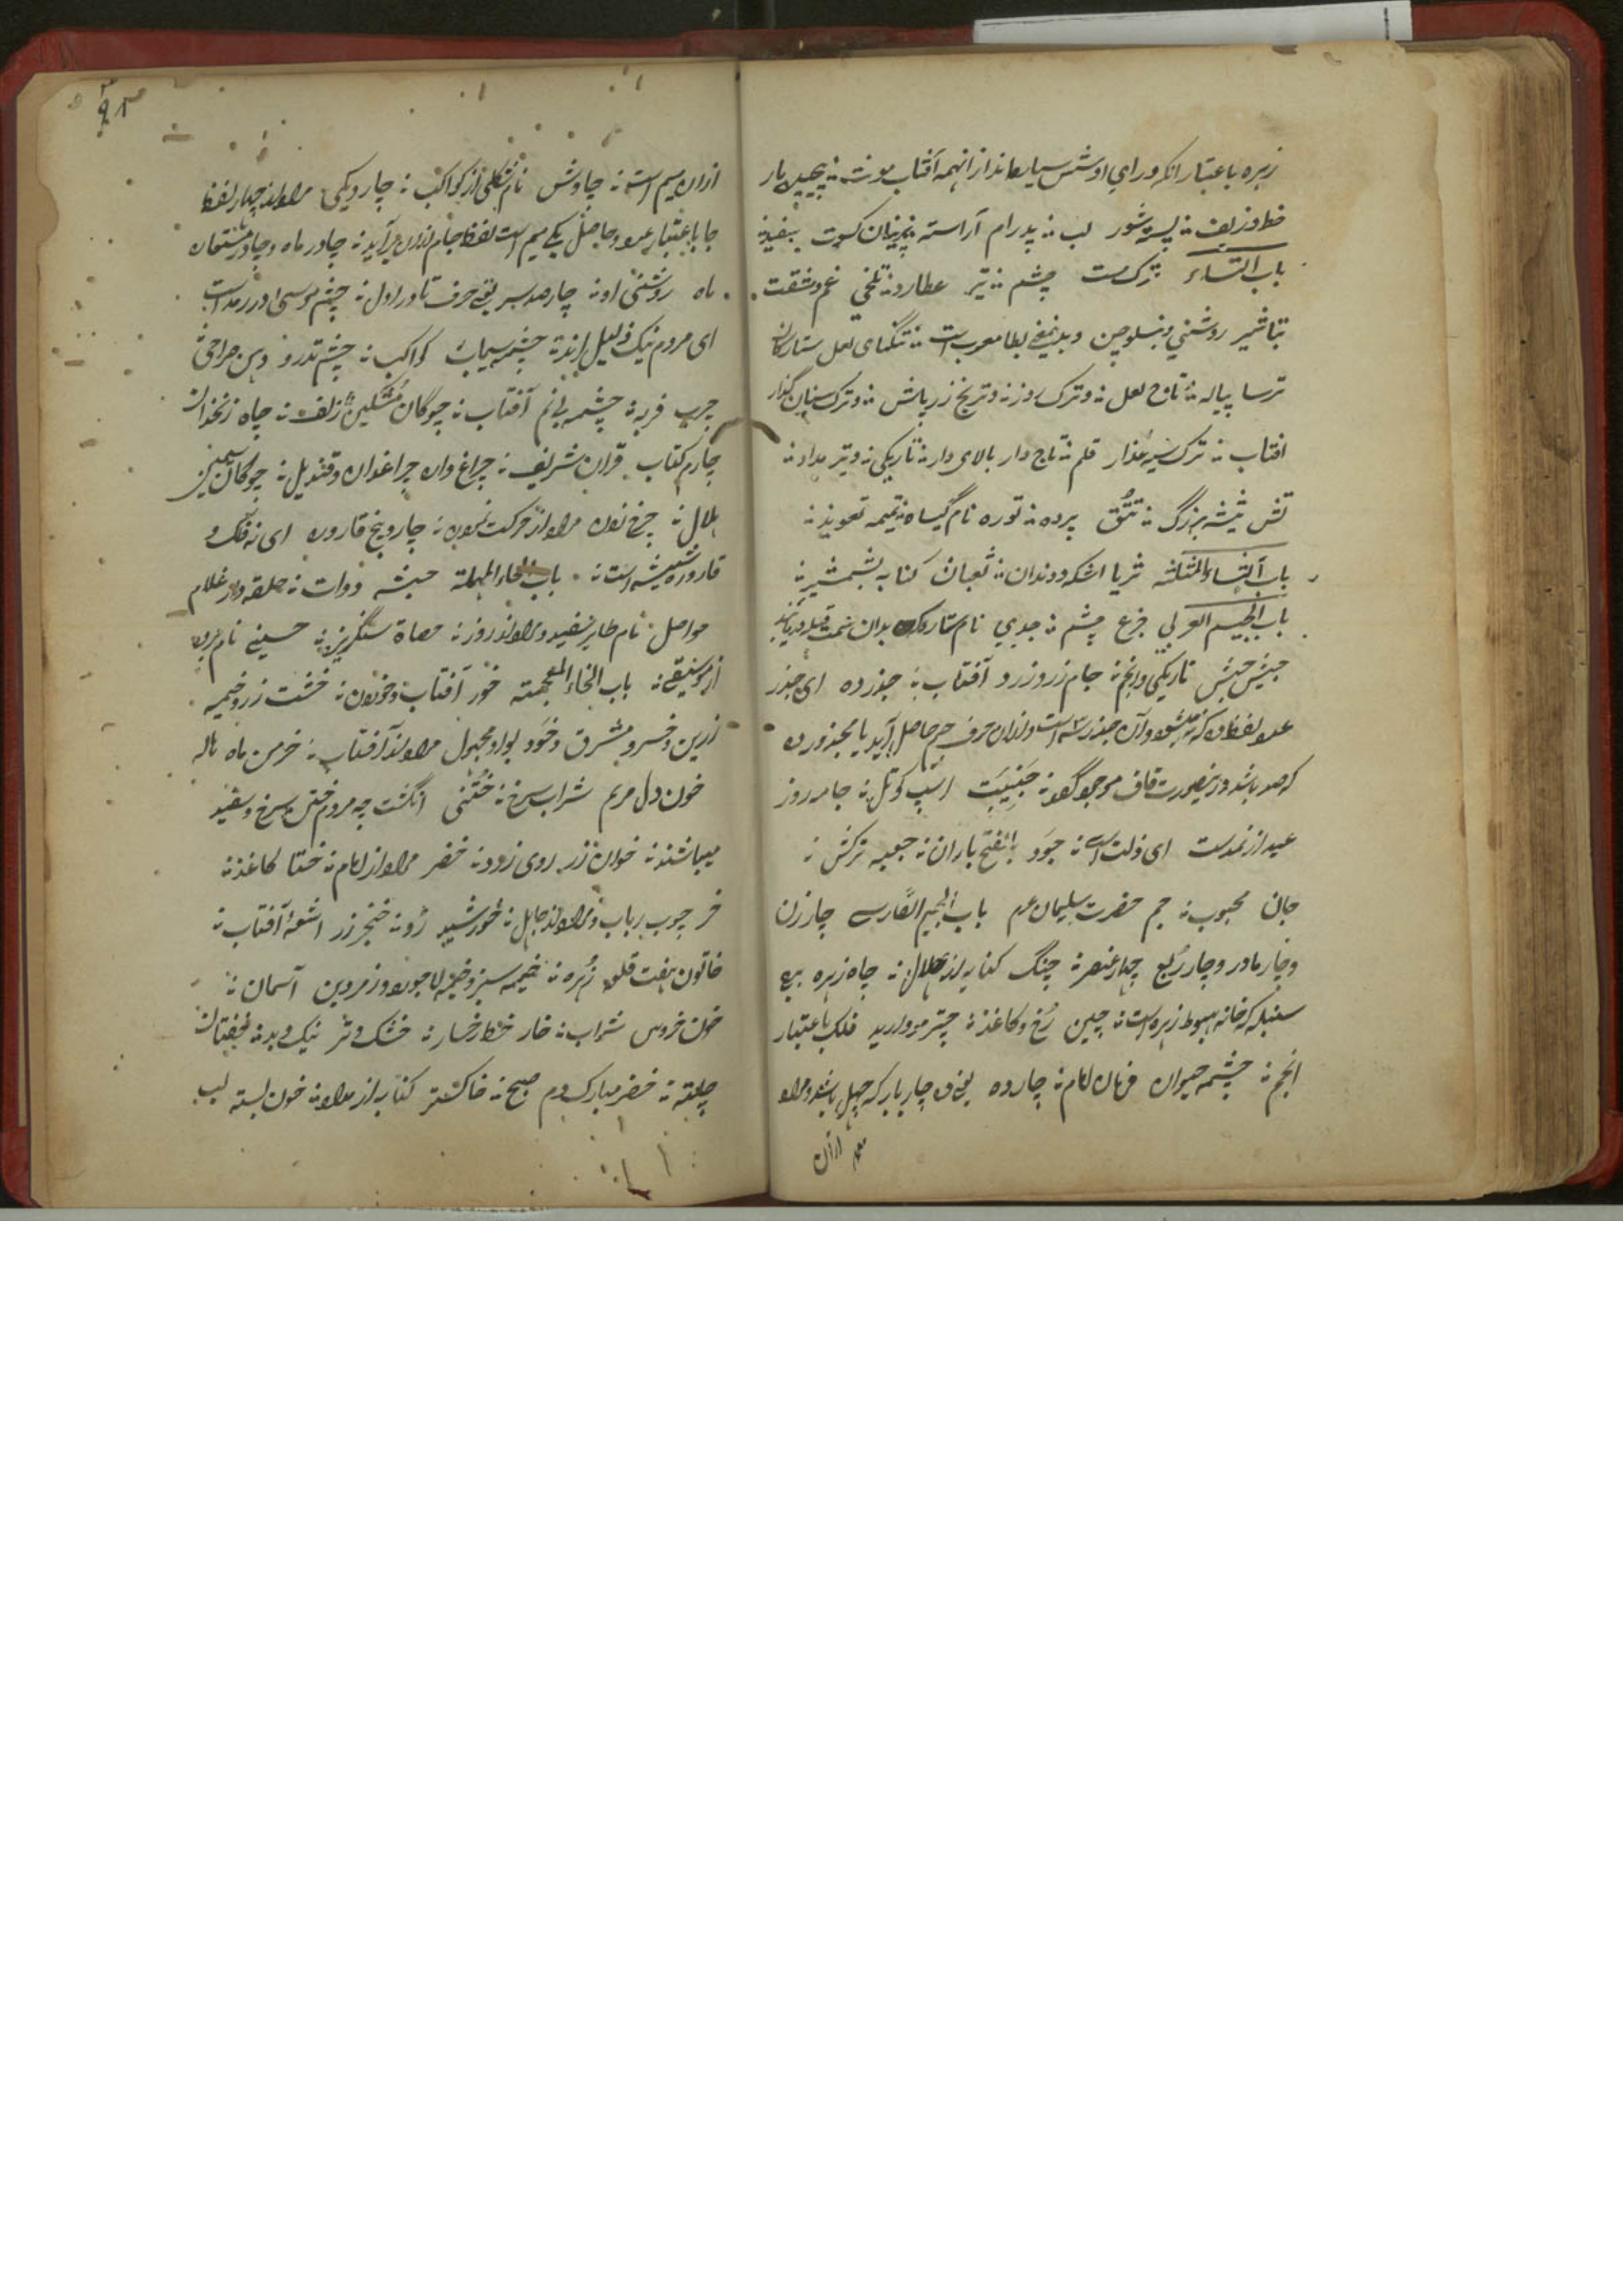 زهره باعتبار انکه ورای او شش سیاره اند از انهمه آفتاب مونث ؞ پیچیده مار
خط و زلف ؞ پسته شور لب ؞ پدرام آراسته ؞ پرنیان کسوت سفید ؞
باب التاء ترک مست چشم ؞ تیر عطارد ؞ تلخی غم و مشقت
تباشیر روشنی و بنسلوچن است ؞ تنگنای لعل ستارکان
ترسا پیاله ؞ تاج لعل ؞ وترک روز ؞ وترنج زر پاش ؞ وترک سنان گذار
افتاب ؞ ترک سیه عذار قلم ؞ تاج دار بالای دار ؞ تاریکی ؞ وتیر مداد ؞
تش تیشه بزرگ ؞ تتق پرده ؞ توره نام گیاه ؞ تمیمه تعویذ ؞
باب الثاء المثلثه ثریا اشک و دندان ؞ ثعبان کنایه بشمشیر ؞
باب الجیم العربی جزع چشم ؞ جدی نام ستاره که بدان سمت قبله دریابند
جیش حبش تاریکی وانجم ؞ جام زر و زرد آفتاب ؞ جذر ده ای جذر
عدد لفظ ده که نه میشود وآن جذر سه است وازان حرف جیم حاصل آید یا مجذور ده
که صد باشد ودرینصورت قاف موجود گردد ؞ جنیبت اسپ کوتل ؞ جامه روز
عید از نمدست ای ذلت است ؞ جود بالفتح باران ؞ جعبه ترکش ؞
جان محبوب ؞ جم حضرت سلیمان عم باب الجیم الفارسی چار زن
وچار مادر وچار ربع چهار عنصر ؞ چنگ کنایه از هلال ؞ چاه زهره برج
سنبله که خانه هبوط زهره است ؞ چین رخ وکاغذ ؞ چتر مروارید فلک باعتبار
انجم ؞ چشمه حیوان فرمان امام ؞ چار ده یعنی چار بار که چهل باشد ومراد
ازان
ازان میم است ؞ چاوش نام شکلی از کواکب ؞ چار ویکی مراد از چهار لفظ
جا باعتبار عدد وحاصل یکی میم است لفظ جام ازان برآید ؞ چادر ماه وچادر
ماه روشنی او ؞ چار صد سر یعنی حرف تا در اول ؞ چشم موسی او در رمد است
ای مردم نیک ذلیل اند ؞ چشمه سیماب کواکب ؞ چشم تدرو دهن صراحی ؞
چرب فربه ؞ چشمه بی نم آفتاب ؞ چوگان مشکین زلف ؞ چاه زنخدان
چارم کتاب قران شریف ؞ چراغ وان چراغدان وقندیل ؞ چوگان سیمین
هلال ؞ چرخ زدن مراد از حرکت نمودن ؞ چار وپنج قاروره ای نه فلک و
قاروره شیشه است ؞ باب الحاء المهملة حبشه دوات ؞ حلقه دار غلام
حواصل نام طایر سفید ومراد از روز ؞ حصاة سنگریزه ؞ حسینی نام پرده
از موسیقی ؞ باب الخاء المعجمة خور آفتاب وخوردن ؞ خشت زر وخیمه
زرین وخسرو مشرق وخود بواو مجهول مراد از آفتاب ؞ خرمن ماه هاله
خون دل مریم شراب سرخ ؞ ختنی انگشت چه مردم ختن سرخ وسفید
میباشند ؞ خوان زر روی زرد ؞ خضر مراد از امام ؞ ختا کاغذ ؞
خر چوب رباب ومراد از جاهل ؞ خورشید رو ؞ خنجر زر اشعهٔ آفتاب ؞
خاتون هفت قلعه زهره ؞ خیمه سبز وخیمه لاجورد وزمردین آسمان ؞
خون خروس شراب ؞ خار خط رخسار ؞ خشک وتر نیک وبد ؞ خفتان
چلته ؞ خضر مبارک دم صبح ؞ خاکستر کنایه از مداد ؞ خون بسته لب